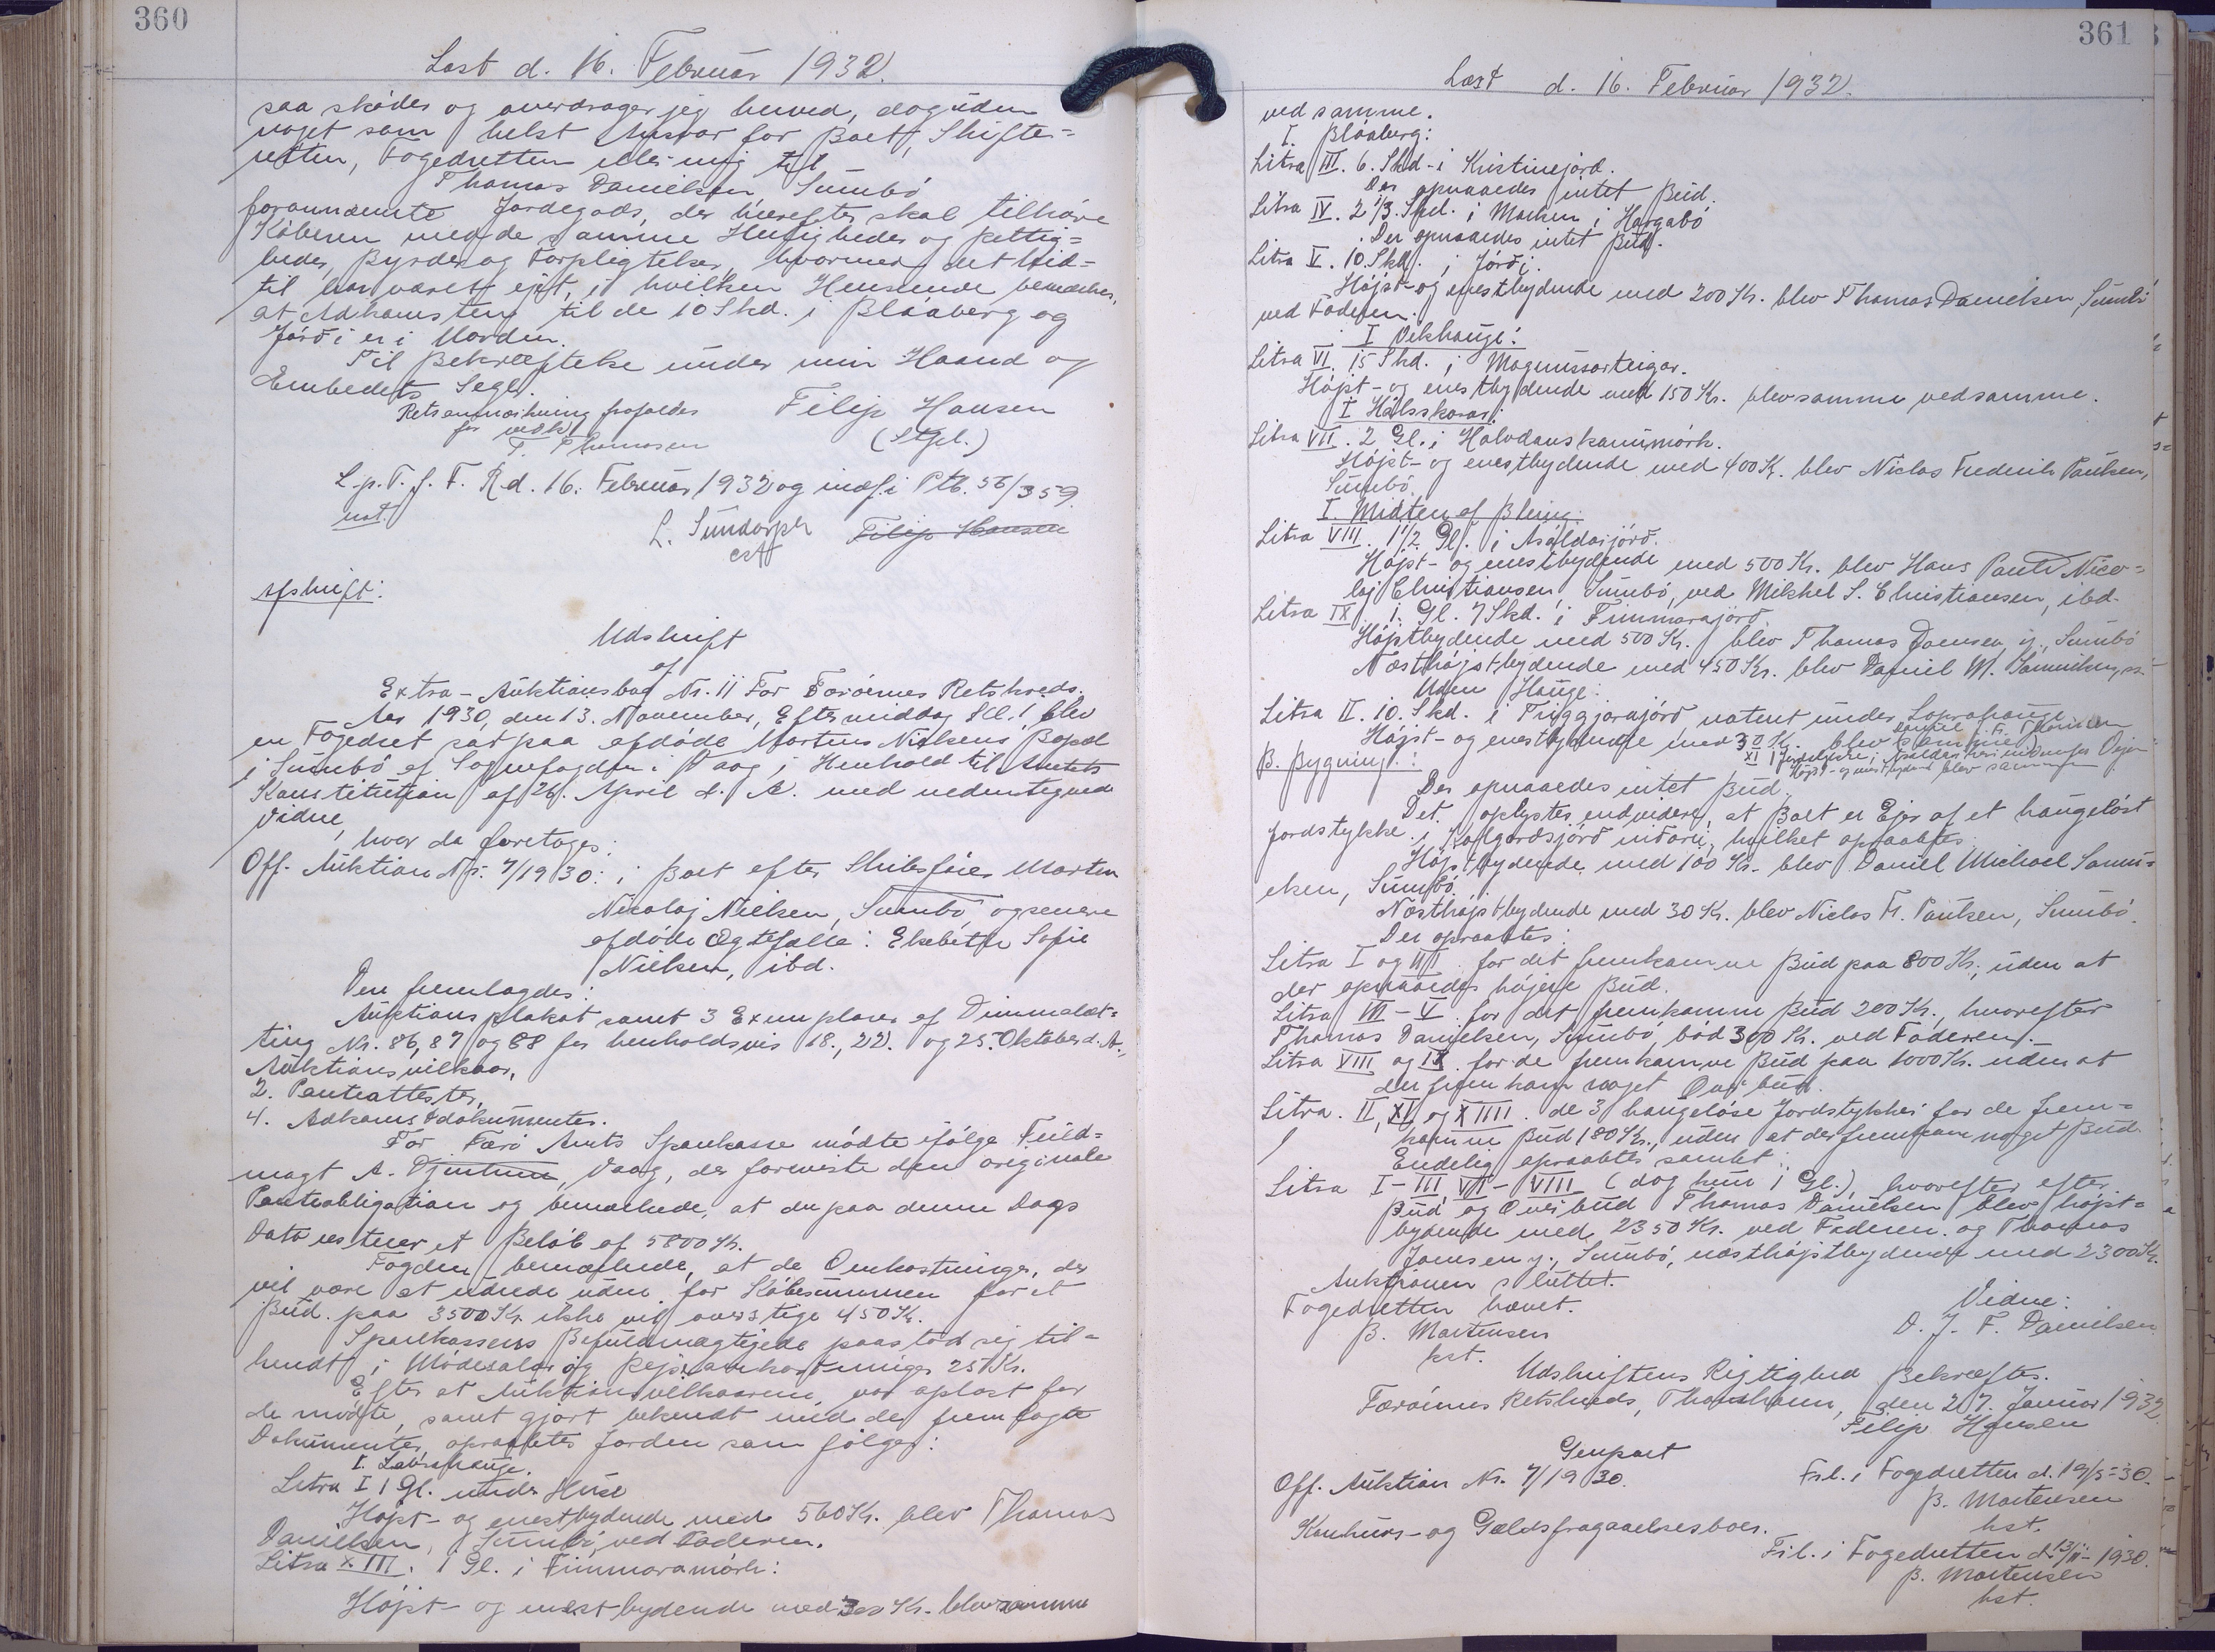 360
Læst d. 16. Februar 1932.
saa skøder og overdrager jeg herved, dog uden
noget som helst Ansvar for Boet, Skifte-
retten, Fogedretten eller mig til
Thomas Danielsen Sumbö
forannævnte Jordegods, der herefter skal tilhøre
Köberen med de samme Herligheder og Rettig-
heder, Byrder og Forpligtelser, hvormed det hid-
til har været ejet, i hvilken Henseende bemærkes,
at Adkomsten til de 10 Skd. i Bláaberg og
Jörd i er i Orden.
Til Bekræftelse under min Haand og
Embedets Segl.
Retsanmærkning frafaldes
for vedk.
T. Thomasen
Filip Hansen
(Stpl.)
L.p.T.f.F.R.d. 16. Februar 1932 og indf. i Ptb. 56/359.
not.
L. Sundorph
cst
Filip Hansen
Afskrift:
Udskrift
af
Extra-Auktionsbog Nr. 11 For Færöernes Retskreds.
Aar 1930, den 13. November, Eftermiddag Kl. 1, blev
en Fogedret sat paa afdöde Mortens Nielsens Bopæl
i Sumbö af Sognefogden i Vaag i Henhold til Amtets
Konstitution af 26. April d. A. med undertegnede
Vidne,
hvor da foretoges:
Off. Auktion Nr. 7/1930: i Boet efter Skibsförer Morten
Nicolaj Nielsen, Sumbö, og senere
afdöde Ægtefælle: Elsebeth Sofie
Nielsen, ibd.
Der fremlagdes:
Auktionsplakat samt 3 Exemplarer af Dimmalæt-
ting Nr. 86, 87 og 88 for henholdsvis 18., 22. og 25. Oktober d. A.,
Auktionsvilkaar,
2. Panteattester,
4. Adkomstdokumenter.
For Færö Amts Sparekasse mödte ifölge Fuld-
magt A. Djurhuus, Vaag, der foreviste den originale
Panteobligation og bemærkede, at der paa denne Dags
Dato resterer et Belöb af 5800 Kr.
Fogden bemærkede, at de Omkostninger, der
vil være at udrede uden for Köbesummen for et
Bud paa 3500 Kr. ikke vil overstige 450 Kr.
Sparekassens Befuldmægtigede paastod sig til-
kendt i Mödesalær og Rejseomkostninger 25 Kr.
Efter at Auktionsvilkaarene var oplæst for
de mödte, samt gjort bekendt med de fremlagte
Dokumenter, opraabtes Jorden som fölger:
I. Laðrahauge.
Litra I 1 Gl. under Húse
Höjst- og enestbydende med 560 Kr. blev Thomas
Danielsen, Sumbö, ved Faderen.
Litra XIII. 1 Gl. i Finnaramörk:
Höjst- og enestbydende med 300 Kr. blev samme
361
Læst d. 16. Februar 1932.
ved samme.
I. Bláaberg:
Litra III. 6. Skd. i Kristinejörd.
Der opnaaedes intet Bud.
Litra IV. 2 1/3. Skd. i Marken i Hargabö
Der opnaaedes intet Bud.
Litra V. 10. Skd. i Jörði.
Höjst- og enestbydende med 200 Kr. blev Thomas Danielsen, Sumbö
ved Faderen.
I Vikhauge:
Litra VI. 15 Skd. i Magnussarteigar.
Höjst- og enestbydende med 150 Kr. blev samme ved samme.
I Hálsskorar:
Litra VII. 2 Gl. i Halvdanskammörk.
Höjst- og enestbydende med 400 Kr. blev Niclas Frederik Poulsen,
Sumbö.
I. Midten af Bleing:
Litra VIII. 1 1/2 Gl. i Asáldarjörð.
Höjst- og enestbydende med 500 Kr. blev Hans Pauli Nico-
laj Christiansen, Sumbö, ved Mikkel S. Christiansen, ibd.
Litra IX. 1. Gl. 7 Skd. i Finnarajörd.
Höjstbydende med 500 Kr. blev Thomas Joensen, y., Sumbö
Næsthöjstbydende med 450 Kr. blev Daniel M. Samuelsen, s.
Uden Hauge:
Litra II. 10. Skd. i Triggjarajörd, uatent under Laðrahauge
Höjst- og enestbydende med 30 Kr. blev samme
B. Bygning:
Der opnaaedes intet Bud.
Det oplystes endvidere, at Boet er Ejer af et haugelöst
Jordstykke i Kálgardsjörd niðari, hvilket opraabtes
Höjstbydende med 100 Kr. blev Daniel Michael Samu-
elsen, Sumbö.
Næsthöjstbydende med 30 Kr. blev Niclas Fr. Poulsen, Sumbö.
Der opraabtes:
Litra I og III for det fremkomne Bud paa 800 Kr., uden at
der opnaaedes höjere Bud.
Litra III - V for det fremkomne Bud 200 Kr., hvorefter
Thomas Danielsen, Sumbö, böd 300 Kr. ved Faderen.
Litra VIII og IX for de fremkomne Bud paa 1000 Kr. uden at
der fremkom noget Overbud.
Litra. II, XI, og XIIII. de 3 haugelöse Jordstykker for de frem-
komne Bud 180 Kr., uden at der fremkom noget Bud.
Endelig opraabtes samlet:
Litra I - III, VI - VIII (dog kun 1 Gl.), hvorefter efter
Bud og Overbud Thomas Danielsen blev höjst-
bydende med 2350 Kr. ved Faderen og Thomas
Joensen y., Sumbö, næsthöjstbydende med 2300 Kr.
Auktionen sluttet.
Fogedretten hævet.
B. Mortensen
kst.
Vidne:
D. J. F. Danielsen
Udskriftens Rigtighed Bekræftes.
Færöernes Retskreds, Thorshavn, den 27. Januar 1932.
Filip Hansen
Genpart
Off. Auktion Nr. 7/1930.
Frl. i Fogedretten d. 19/5-30.
B. Mortensen
kst.
Konkurs- og Gældsfragaaelsesboer.
Frl. i Fogedretten d. 13/11-1930.
B. Mortensen
kst.